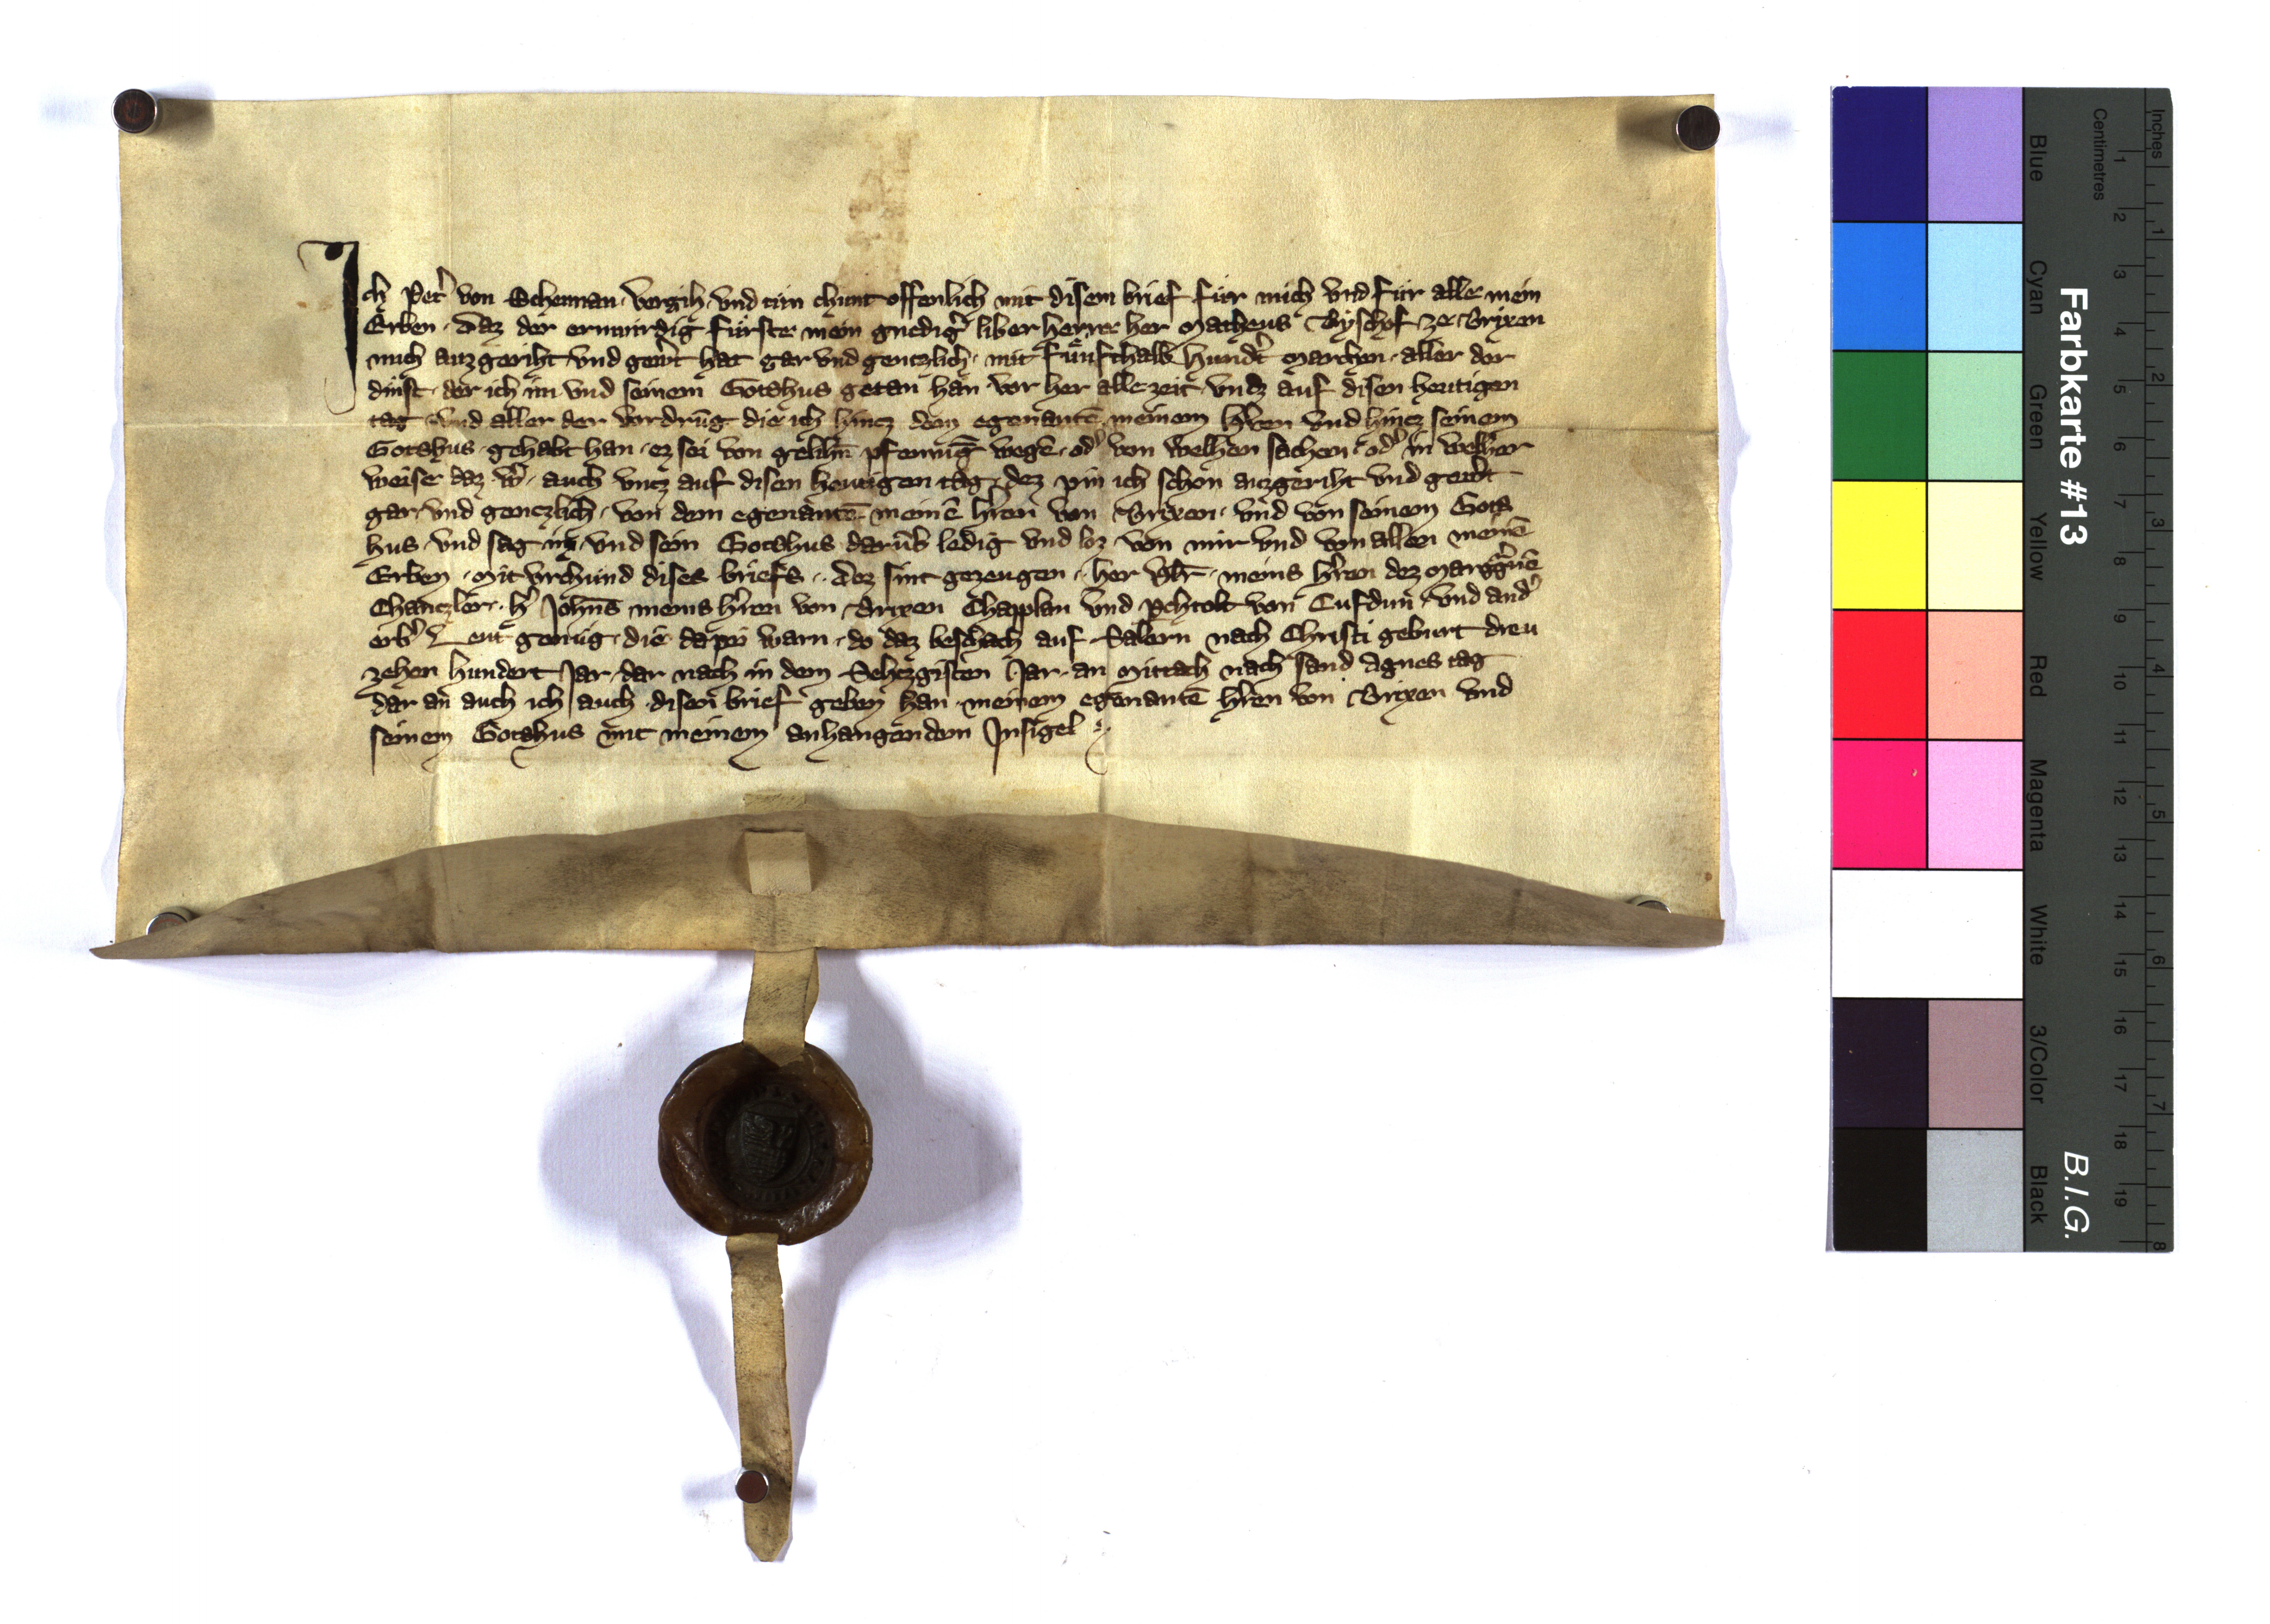 Ich Pet᷑ von Schennan vergih vnd tün chunt offenlich mit disem brief für mich vnd für alle mein
Erben · Daz der erwirdig fürste mein gnedig᷑ liber herre her Matheus Byschof ze Brixen
mich auzgeriht vnd gewert hat gar vnd gentzlich · mit fünfthalb hund᷑t Marchen · aller der
dinst · der ich im vnd seinem Gotshus getan han vor her alle zeit vntz auf disen heutigen
tag vnd aller der vordrūg die ich hincz dem egenantē meinem h᷑ren vnd hincz seinem
Gotshus · gehabt han · ez sei von gelihn̄ pfennig wegē · od᷑ von welhen sachen · od᷑ in welher
weise daz w᷑ · auch vntz auf disen heutigen tag · dez pin ich schon auzgeriht vnd gewert
gar vnd gentzlich · von dem egenantē meinē h᷑ren von Brixen · vnd von seinem Gots
hus · vnd sag in vnd sein Gotshus darüb᷑ ledig vnd loz von mir vnd von allen meinē
Erben · Mit vrchund dises briefs · Dez sint gezeugen · her · meins h᷑ren dez
Chantzler · h᷑ Johns̄ meins h᷑ren von Brixen Chapplan vnd von Cufdun · vnd and᷑
erb᷑ Leut genüg · die da pei warn · do daz beschach auf Salern nach Christi geburt dreu
zehen hundert Jar · dar nach in dem Sehtzgisten Jar · an Mittach nach sand Agnes tag
dar an auch ich auch disen brief geben han · meinem egenantē h᷑ren von Brixen vnd
seinem Gotshus mit meinem anhangendem Insigel
Farbkarte #13
B.I.G.
Inches
Centimetres
Blue
Cyan
Green
Yellow
Red
Magenta
White
3/Color
Black
1 2 3 4 5 6 7 8 9 10 11 12 13 14 15 16 17 18 19
1 2 3 4 5 6 7 8